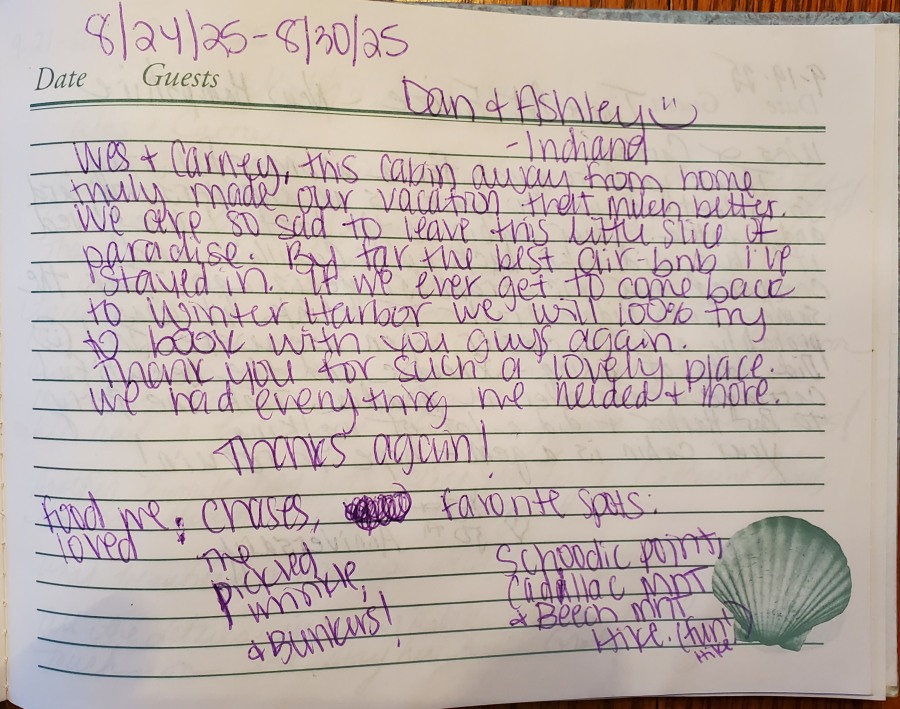 8/24/25-8/30/25
Date Guests
Dan + Ashley
-Indiana
Wes + Carney, this cabin away from home
truly made our vacation that much better.
We are so sad to leave this little slice of
paradise. By far the best air-bnb I've
stayed in. If we ever get to come back
to Winter Harbor we will 100% try
to book with you guys again.
Thank you for such a lovely place.
We had everything we needed + more.
Thanks again!
food we loved: Chases,
The
pickled
wrinkle,
+ Bunkers!
favorite spots:
Schoodic point,
Cadillac MNT
+ Beech MNT
Hike. (fun!
Hike)